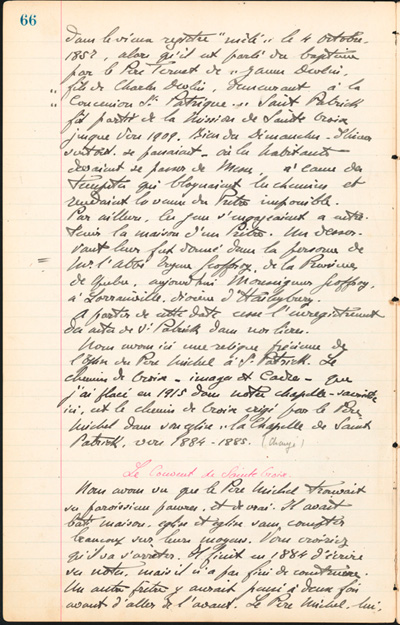 66
dans le vieux registre "mêlé" le 4 Octobre
1857, alors qu'il est parlé du baptême
par le Père Ternet de "James Devlin,
fils de Charles Devlin, demeurant à la
" Concession St. Patrique." Saint Patrick
fit partie de la Mission de Sainte Croix
jusque vers 1909. Bien des Dimanches - d'hiver
surtout - se passaient - où les habitants
devaient se passer de Messe, à cause des
tempêtes qui bloquaient les chemins et
rendaient la venue du Prêtre impossible.
Par ailleurs, les gens s'engageaient à entre-
tenir la maison d'un Prêtre. Un desser-
vant leur fut donné dans la personne de
Mr. l'Abbé Eugène Geoffroy, de la Province
de Québec, aujourd'hui Monseigneur Geoffroy,
à Lorrainville, diocèse d'Haileybury.
A partir de cette date cesse l'enregistrement
des actes de St Patrick dans nos livres.
Nous avons ici une relique précieuse de
du Père Michel à St. Patrick. Le
chemin de Croix - images et Cadres - que
j'ai placé en 1915 dans notre chapelle-sacristie
ici, est le chemin de Croix érigé par le Père
Michel dans son église "la Chapelle de Saint
Patrick, vers 1884-1885. (changé)
Le Couvent de Sainte Croix
Nous avons vu que le Père Michel trouvait
ses paroissiens pauvres, et de vrai. Il avait
bâti maison, église et église sans compter
beaucoup sur leurs moyens. Vous croiriez
qu'il va s'arrêter. Il finit en 1884 d'écrire
ses notes, mais il n'a pas fini de construire.
Un autre Prêtre y aurait pensé à deux fois
avant d'aller de l'avant. Le Père Michel, lui,